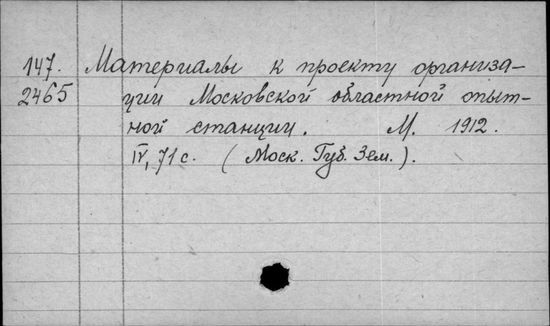 147. Материалы к проекту организа-
2465 ции Московской областной опыт-
ной станции. М. 1912.
IV, 71 с. (Моск. Губ. Зем.).